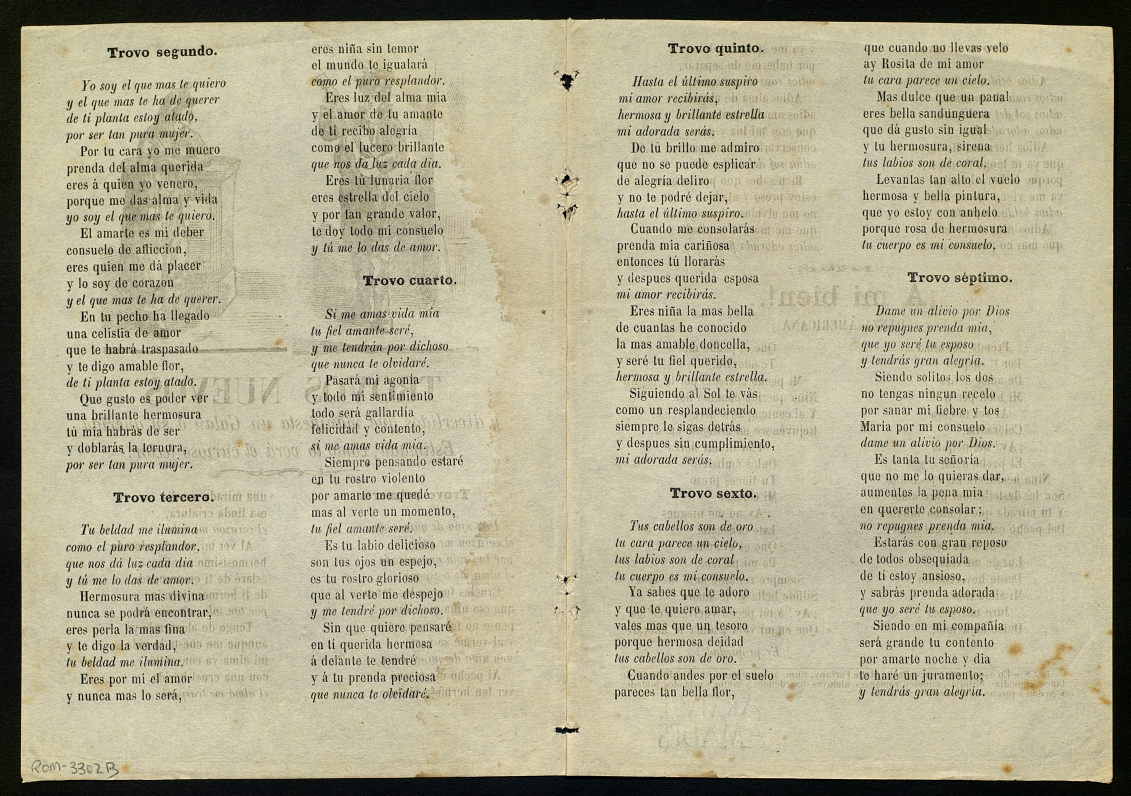 Trovo segundo.
Yo soy el que mas te quiero
y el que mas te ha de querer
de ti planta estoy atado,
por ser tan pura mujer.
Por tu cara yo me muero
prenda del alma querida
eres á quien yo venero,
porque me das alma y vida
yo soy el que mas te quiero.
El amarte es mi deber
consuelo de afliccion,
eres quien me dá placer
y lo soy de corazon
y el que mas te ha de querer.
En tu pecho ha llegado
una celistia de amor
que te habrá traspasado
y te digo amable flor,
de ti planta estoy atado.
Que gusto es poder ver
una brillante hermosura
tú mia habrás de ser
y doblarás la ternura,
por ser tan pura mujer.
Trovo tercero.
Tu beldad me ilumina
como el puro resplandor,
que nos dá luz cada dia
y tú me lo das de amor.
Hermosura mas divina
nunca se podrá encontrar,
eres perla la mas fina
y te digo la verdad,
tu beldad me ilumina.
Eres por mi el amor
y nunca mas lo será,
eres niña sin temor
el mundo te igualará
como el puro resplandor.
Eres luz del alma mia
y el amor de tu amante
de tí recibo alegría
como el lucero brillante
que nos da luz cada dia.
Eres tú lunaria flor
eres estrella del cielo
y por tan grande valor,
te doy todo mi consuelo
y tú me lo das de amor.
Trovo cuarto.
Si me amas vida mia
tu fiel amante seré,
y me tendrán por dichoso
que nunca te olvidaré.
Pasará mi agonía
y todo mi sentimiento
todo será gallardía
felicidad y contento,
si me amas vida mia.
Siempre pensando estaré
en tu rostro violento
por amarte me quedé
mas al verte un momento,
tu fiel amante seré.
Es tu labio delicioso
son tus ojos un espejo,
es tu rostro glorioso
que al verte me despejo
y me tendré por dichoso.
Sin que quiere pensaré
en tí querida hermosa
á delante te tendré
y á tu prenda preciosa
que nunca te olvidaré.
Trovo quinto.
Hasta el último suspiro
mi amor recibirás,
hermosa y brillante estrella
mi adorada serás.
De tú brillo me admiro
que no se puede esplicar
de alegría deliro
y no te podré dejar,
hasta el último suspiro.
Cuando me consolarás
prenda mia cariñosa
entonces tú llorarás
y despues querida esposa
mi amor recibirás.
Eres niña la mas bella
de cuantas he conocido
la mas amable doncella,
y seré tu fiel querido,
hermosa y brillante estrella.
Siguiendo al Sol te vás
como un resplandeciendo
siempre le sigas detrás
y despues sin cumplimiento,
mi adorada serás.
Trovo sexto.
Tus cabellos son de oro
tu cara parece un cielo,
tus labios son de coral
tu cuerpo es mi consuelo.
Ya sabes que te adoro
y que te quiero amar,
vales mas que un tesoro
porque hermosa deidad
tus cabellos son de oro.
Cuando andes por el suelo
pareces tan bella flor,
que cuando no llevas velo
ay Rosita de mi amor
tu cara parece un cielo.
Mas dulce que un panal
eres bella sandunguera
que dá gusto sin igual
y tu hermosura, sirena
tus labios son de coral.
Levantas tan alto el vuelo
hermosa y bella pintura,
que yo estoy con anhelo
porque rosa de hermosura
tu cuerpo es mi consuelo.
Trovo séptimo.
Dame un alivio por Dios
no repugnes prenda mia,
que yo seré tu esposo
y tendrás gran alegría.
Siendo solitos los dos
no tengas ningun recelo
por sanar mi fiebre y tos
María por mi consuelo
dame un alivio por Dios.
Es tanta tu señoría
que no me lo quieras dar,
aumentes la pena mia
en quererte consolar;
no repugnes prenda mia.
Estarás con gran reposo
de todos obsequiada
de tí estoy ansioso,
y sabrás prenda adorada
que yo seré tu esposo.
Siendo en mi compañía
será grande tu contento
por amarte noche y dia
te haré un juramento;
y tendrás gran alegría.
ROM-3302B